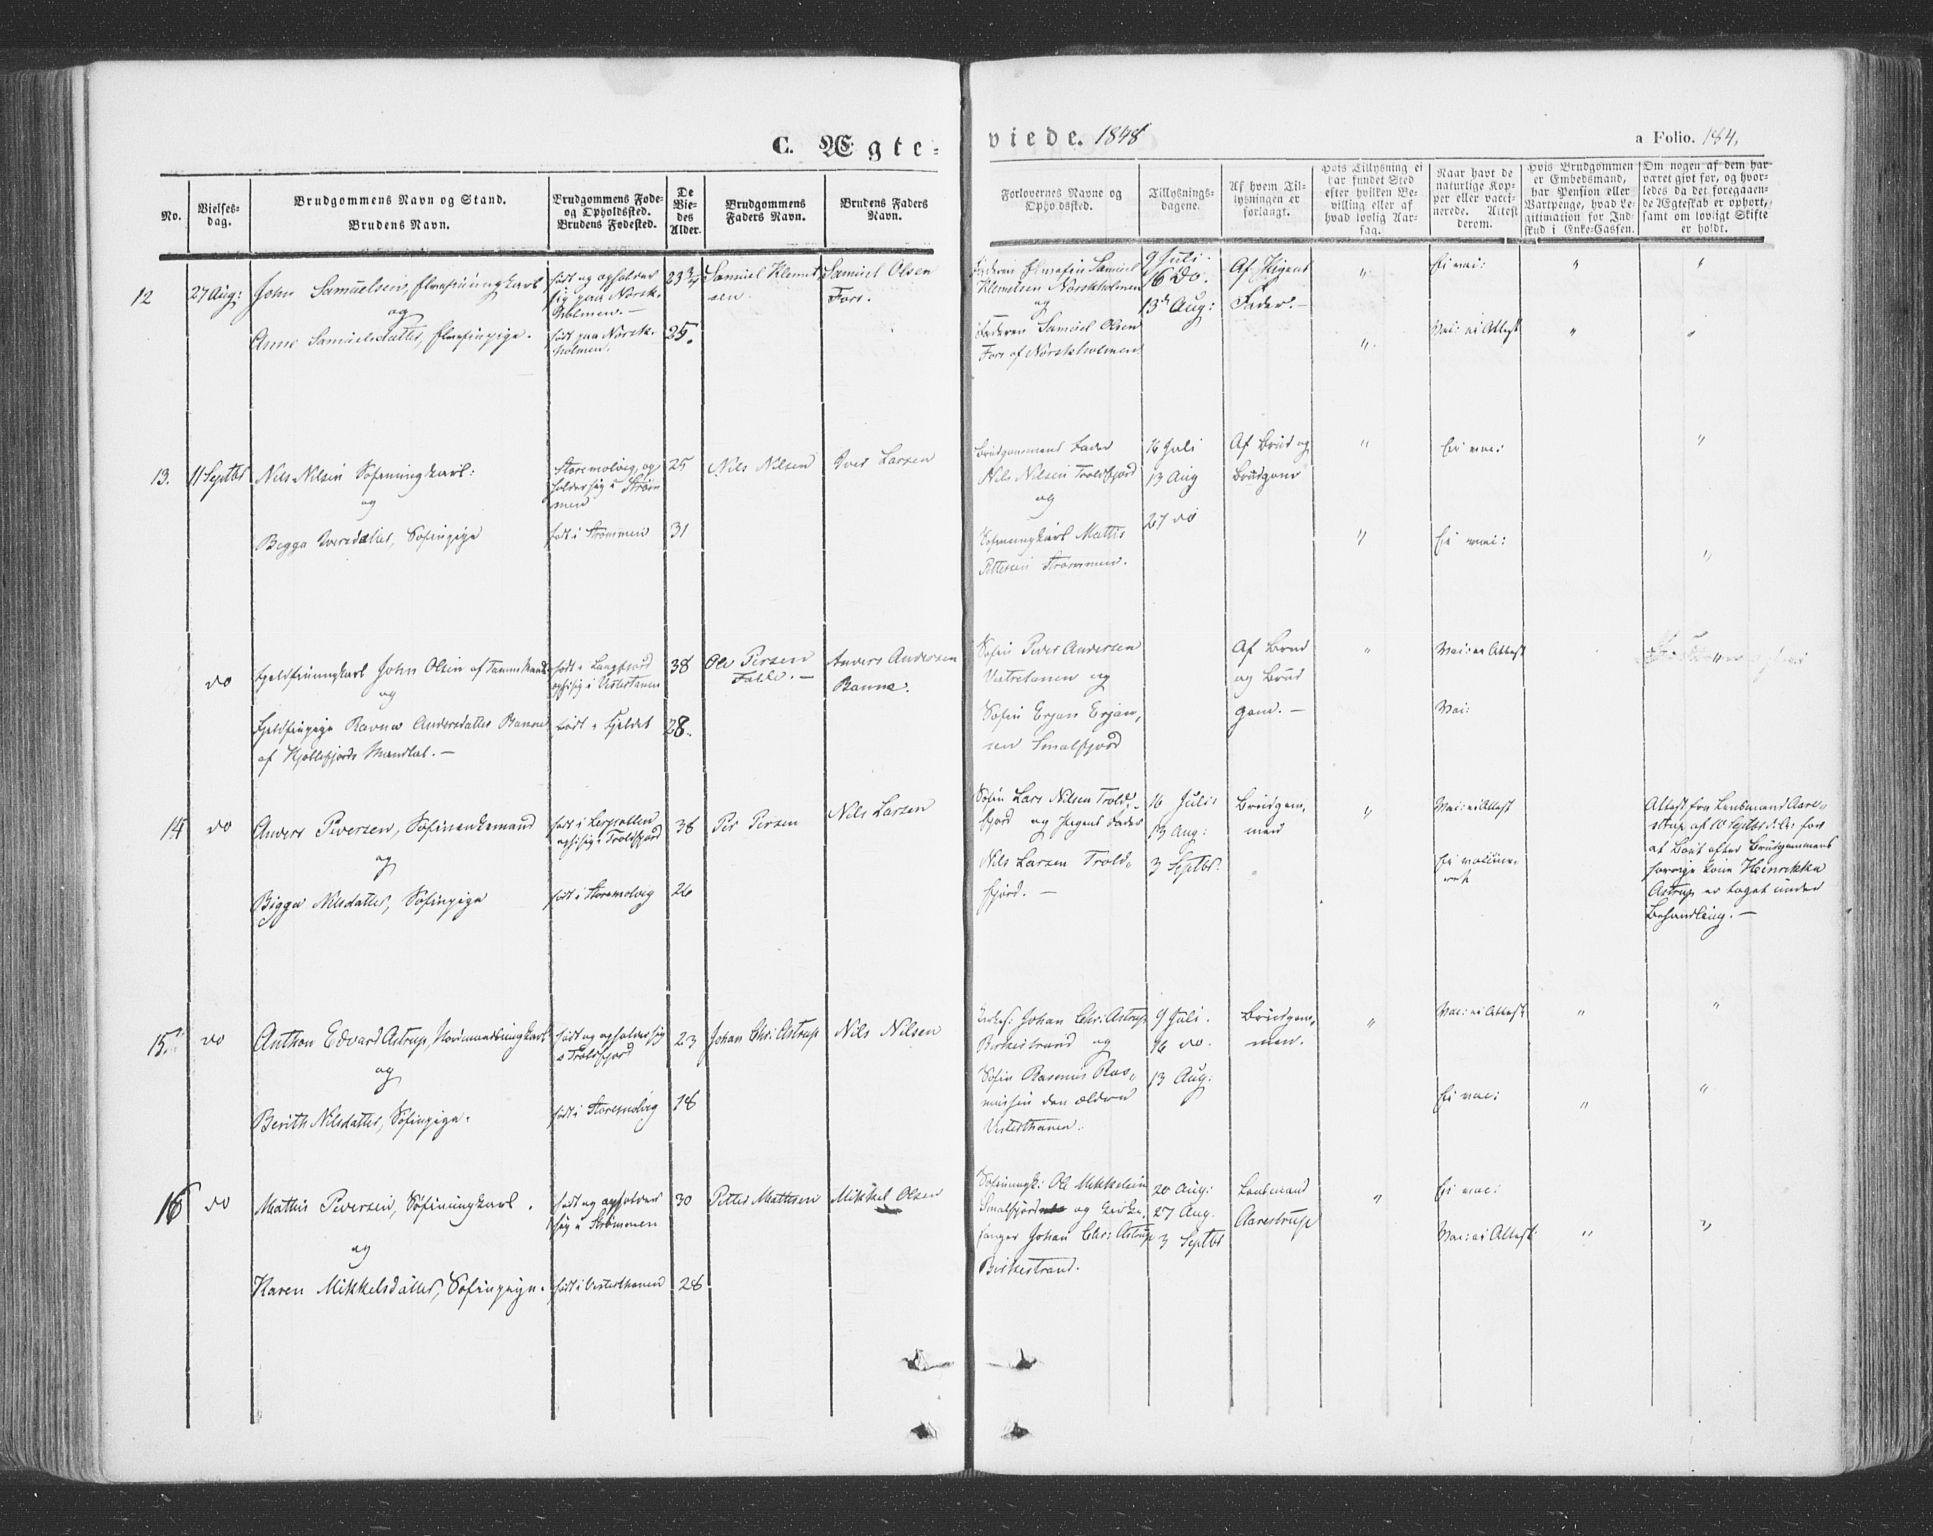 C. Ægte-
viede. 1848
a Folio. 184.
No.
Vielses-
dag.
Brudgommens Navn og Stand.
Brudens Navn.
Brudgommens Føde-
og Opholdssted.
Brudens Fødested.
De
Vie-
des
Alder.
Brudgommens
Faders Navn.
Brudens Faders
Navn.
Forlovernes Navne og
Opholdssted.
Tillysnings-
dagene.
Af hvem Til-
lysningen er
forlangt.
Hvis Tillysning ei
har fundet Sted
efter hvilken Be-
villing eller af
hvad lovlig Aar-
sag.
Naar havt de
naturlige Kop-
per eller vacci-
nerede. Attest
derom.
Hvis Brudgommen
er Embedsmand,
har Pension eller
Vartpenge, hvad Le-
gitimation for Ind-
skud i Enke-Cassen.
Om nogen af dem har
været gift før, og hvor-
ledes da det foregaaen-
de Ægteskab er ophørt,
samt om lovligt Skifte
er holdt.
12
27 Aug:
John Samuelsen, Elvefinungkarl
og
Anne Samuelsdatter, Elvefinpige.
født og opholder
sig paa Norsk-
holmen. —
født paa Norsk-
holmen.
23 3/4
25.
Samuel Klemet-
sen.
Samuel Olsen
Fors.
Faderen Elvefin Samuel
Klemetsen Norskholmen
og
Faderen Samuel Olsen
Fors af Norskholmen
9 Juli.
16 do.
13de Aug:
Af Pigens
Fader. —
Ei vac:
Vac: ei Attest
13.
11 Septbr
Nils Nilsen Søfinungkarl:
og
Bigga Iversdatter, Søfinpige
Storemolvig, op-
holder sig i Strøm-
men
født i Strømmen
25
31
Nils Nilsen
Iver Larsen
Brudgommens Fader
Nils Nilsen Troldfjord
og
Søfinungkarl Mattis
Pettersen Strømmen.
16 Juli
13 Aug
27 do
Af Brud og
Brudgom
Ei vac:
Ei vac:
do
Fjeldfinungkarl John Olsen af Tanens Mandtal
og
Fjeldfinpige Ravna Andersdatter Banne
af Kjøllefjords Mandtal. —
født i Langfjord
opth: sig i Vestertanen
født i Fjeldet
38
28.
Ole Persen
Falke. —
Anders Andersen
Banne.
Søfin Peder Andersen
Vestretanen og
Søfin Erjan Erjan-
sen Smalfjord
Af Brud
og Brud
gom. —
Vac: ei Attest
Vac:
14
do
Anders Pedersen, Søfinenkemand
og
Bigga Nilsdatter, Søfinpige
født i Lerpollen
oph: sig i Troldfjord
født i Storemolvig
38
26
Per Persen
Nils Larsen
Søfin Lars Nilsen Trold-
fjord og Pigens Fader
Nils Larsen Trold-
fjord. —
16 Juli
13 Aug:
3 Septbr.
Brudgom-
men
Vac: ei Attest
Ei vaccine-
ret
Attest fra Lensmand Aare-
strup af 10 Septbr d: A: for
at Boet efter Brudgommens
forrige Kone Heinrikka
Astrup er taget under
Behandling. —
15.
do
Anthon Edvard Astrup, Nordmandsungkarl
og
Berith Nilsdatter, Søfinpige.
født og opholder sig
i Troldfjord
født i Storemolvig
23
18
Johan Chr: Astrup
Nils Nilsen
Johan Chr: Astrup
Birkestrand og
Søfin Rasmus Ras-
mussen den ældere
Vesterthanen.
9 Juli.
16 do.
13 Aug:
Brudgom-
men.
Vac: ei Attest
Ei vac:
16
do
Mathis Pedersen, Søfinungkarl.
og
Karen Mikkelsdatter, Søfinpige.
født og opholder
sig i Strømmen
født i Vesterthanen
30
28
Petter Mathisen
Mikkel Olsen
Søfinungk: Ole Mikkelsen
Smalfjord og Kirke-
sanger Johan Chr: Astrup
Birkestrand.
20 Aug:
27 Aug.
3 Septbr
Lensmand
Aarestrup
Ei vac:
Vac: ei Attest.